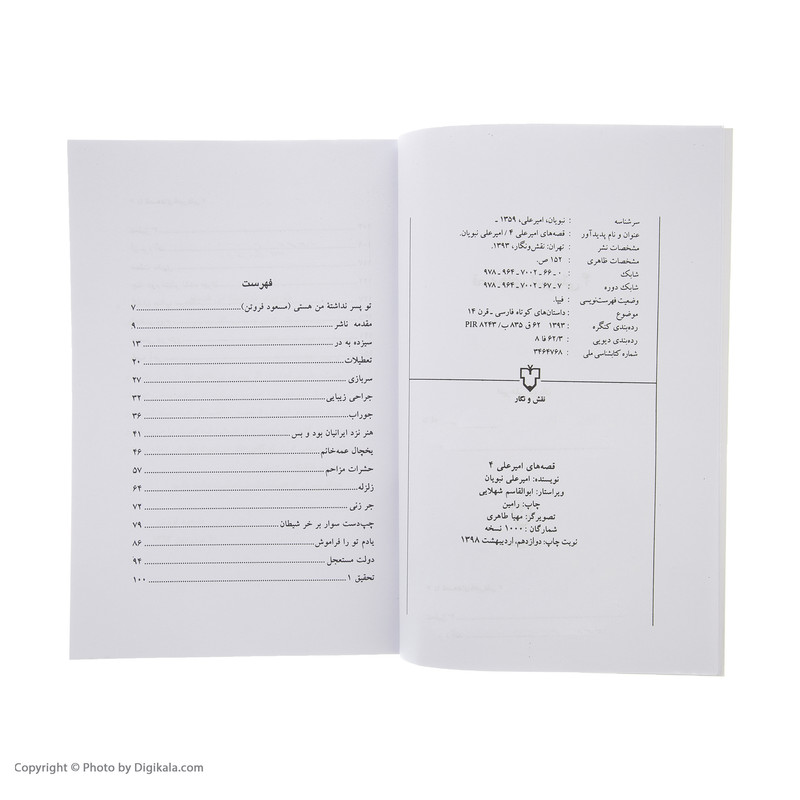 سرشناسه : نبویان، امیرعلی، ۱۳۵۹ ـ
عنوان و نام پدیدآور : قصه‌های امیرعلی ۴ / امیرعلی نبویان.
مشخصات نشر : تهران: نقش‌ونگار، ۱۳۹۳.
مشخصات ظاهری : ۱۵۲ ص.
شابک : ۰ ـ ۶۶ ـ ۷۰۰۲ ـ ۹۶۴ ـ ۹۷۸
شابک دوره : ۷ ـ ۶۷ ـ ۷۰۰۲ ـ ۹۶۴ ـ ۹۷۸
وضعیت فهرست‌نویسی : فیپا.
موضوع : داستان‌های کوتاه فارسی ـ قرن ۱۴
رده‌بندی کنگره : ۱۳۹۳ ۶۲ ق ۸۳۵ ب/ PIR ۸۲۴۳
رده‌بندی دیویی : ۶۲/۳ فا ۸
شماره کتابشناسی ملی : ۳۴۶۴۷۶۸
نقش و نگار
قصه‌های امیرعلی ۴
نویسنده: امیرعلی نبویان
ویراستار: ابوالقاسم شهلایی
چاپ: رامین
تصویرگر: مهیا طاهری
شمارگان: ۱۰۰۰ نسخه
نوبت چاپ: دوازدهم، اردیبهشت ۱۳۹۸
فهرست
تو پسر نداشتهٔ من هستی (مسعود فروتن) ۷
مقدمه ناشر ۹
سیزده به در ۱۳
تعطیلات ۲۰
سربازی ۲۷
جراحی زیبایی ۳۲
جوراب ۳۶
هنر نزد ایرانیان بود و بس ۴۱
یخچال عمه‌خانم ۴۶
حشرات مزاحم ۵۷
زلزله ۶۴
جر زنی ۷۲
چپ‌دست سوار بر خر شیطان ۷۹
یادم تو را فراموش ۸۶
دولت مستعجل ۹۴
تحقیق ۱ ۱۰۰
Copyright © Photo by Digikala.com